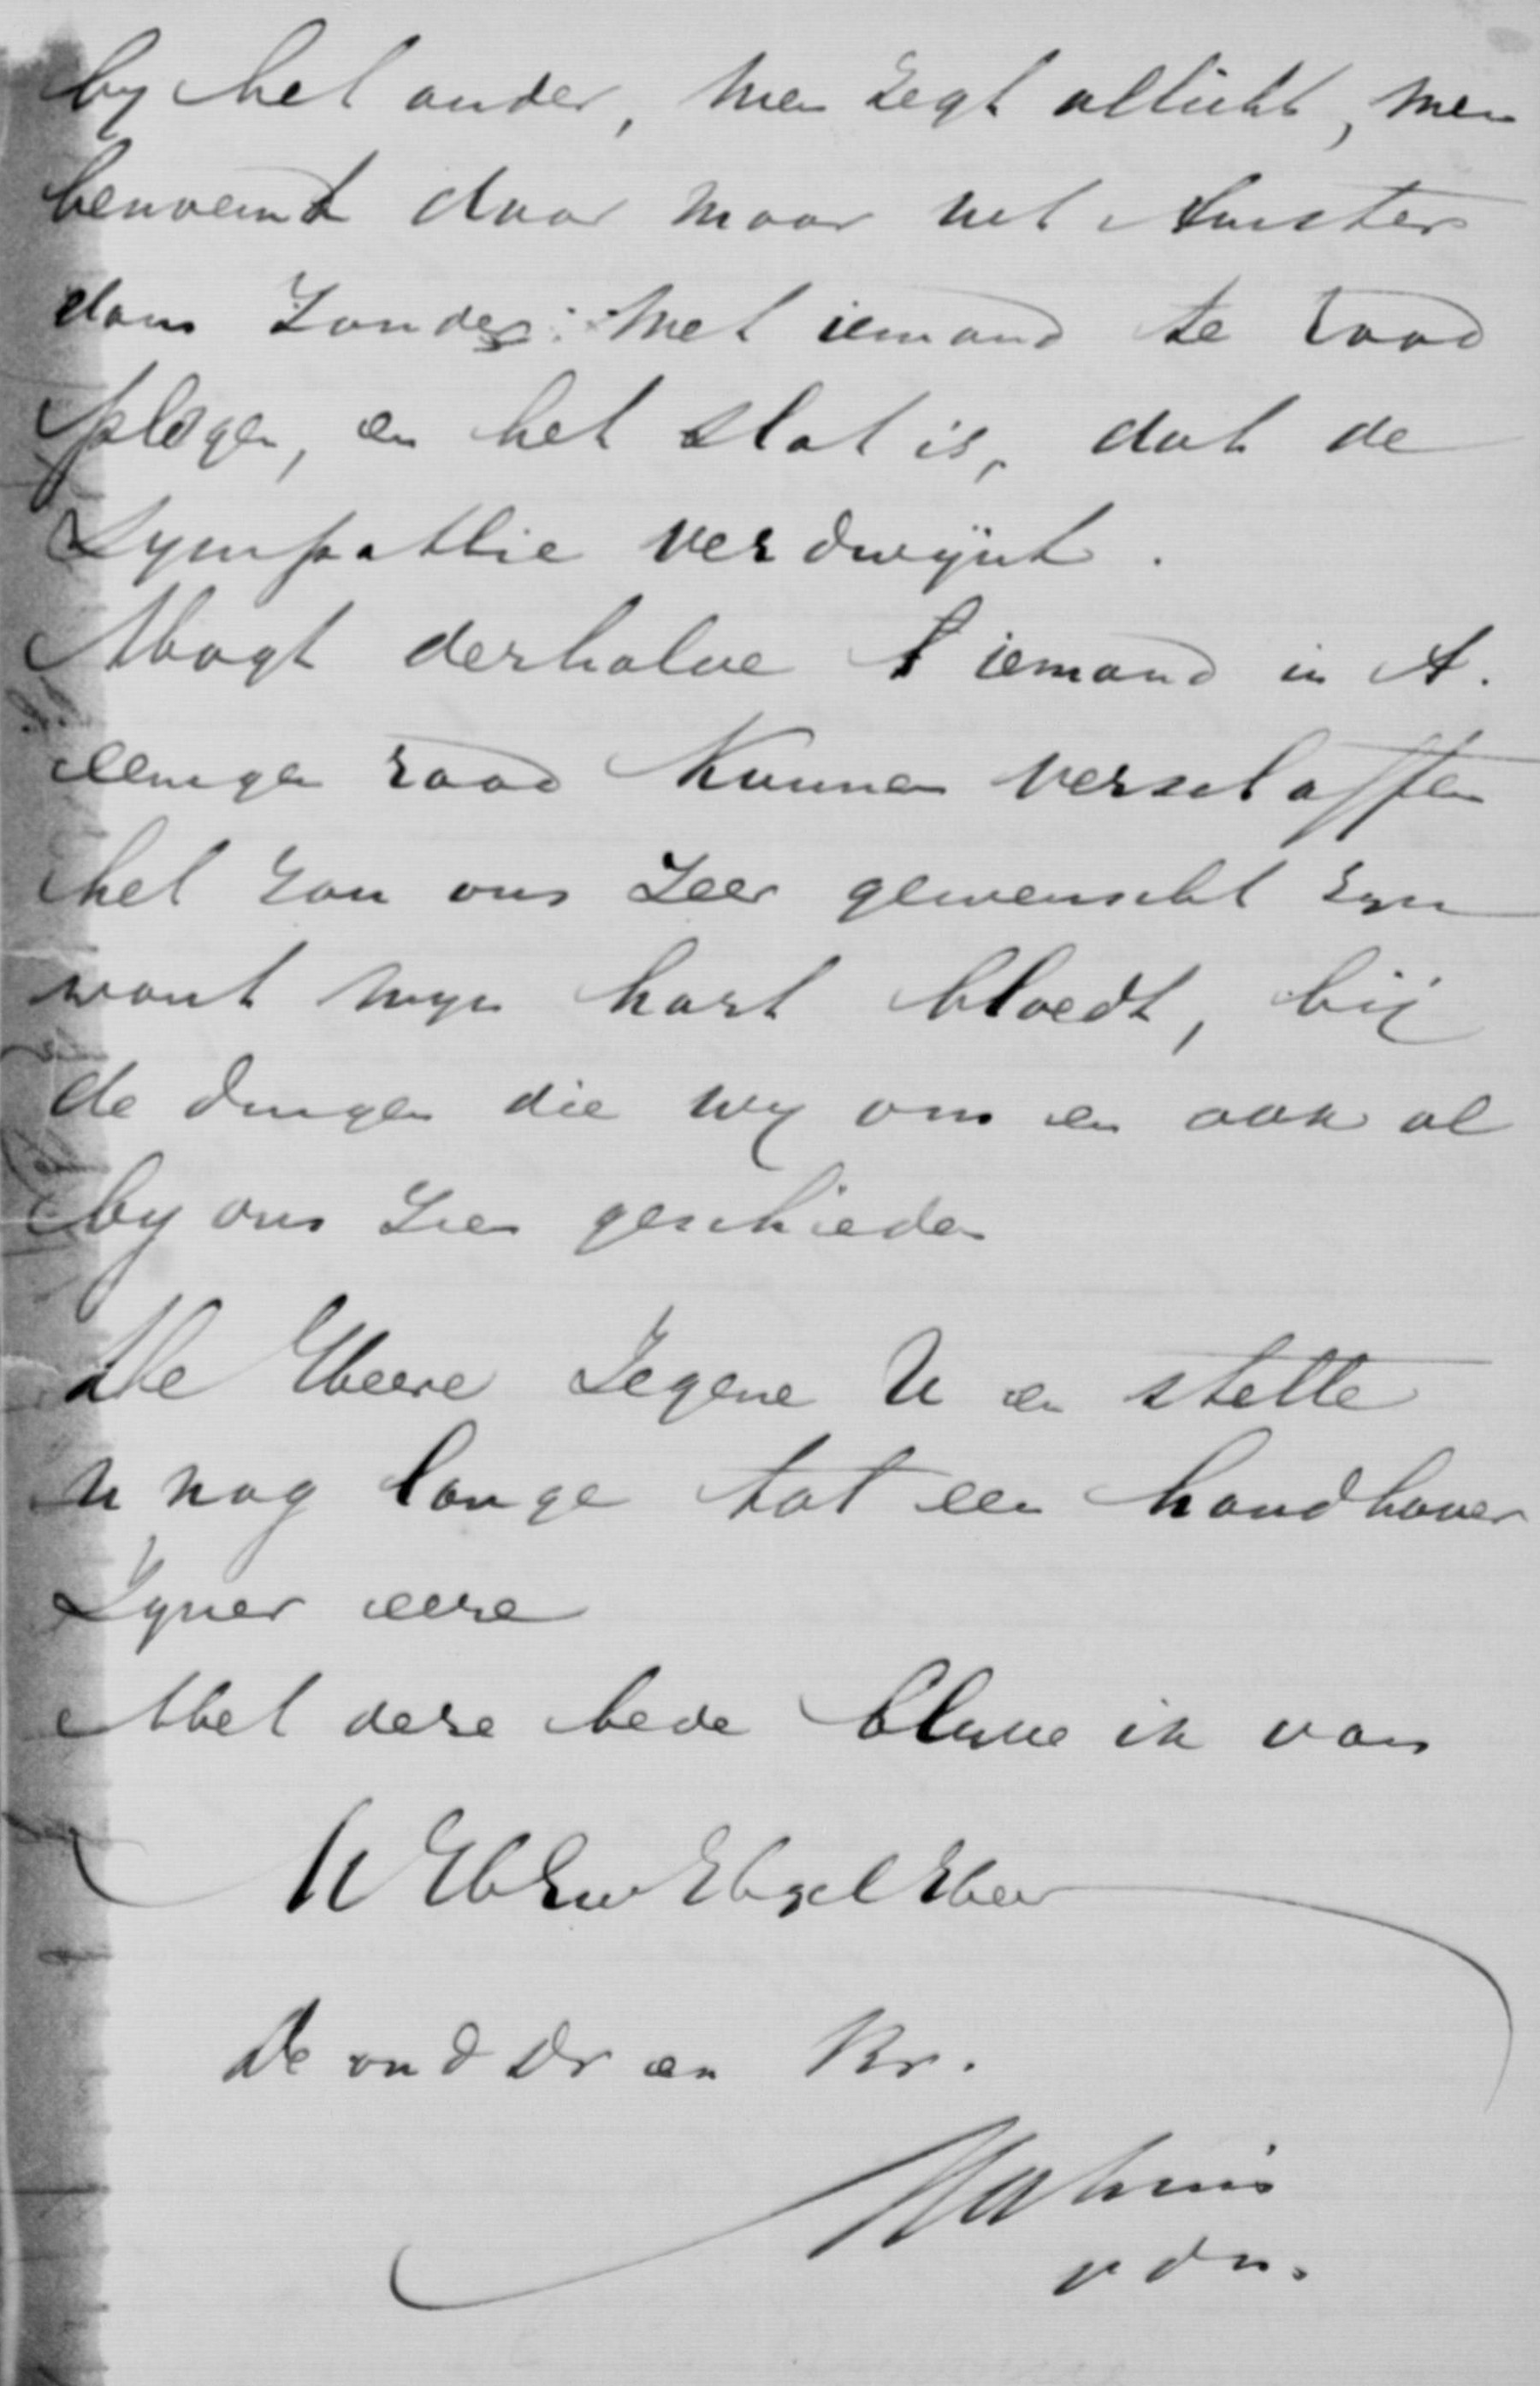 by het ander, men zegt allicht, men
benoemd daar maar uit Amster
dam zonder met iemand te raad
plegen, en het slot is, dat de
Sympathie verdwijnt.
Mogt derhalve iemand in A.
eenigen raad kunnen verschaffen
het zou ons zeer gewenscht zyn
want myn hart bloedt, bij
de dingen die wy om en ook al
by ons zien geschieden
De Heere zegene U en stelle
U nog lange tot een handhaver
Zyner eere
Met deze bede blyve ik van
U
De ond Dr en Br.
vdm.